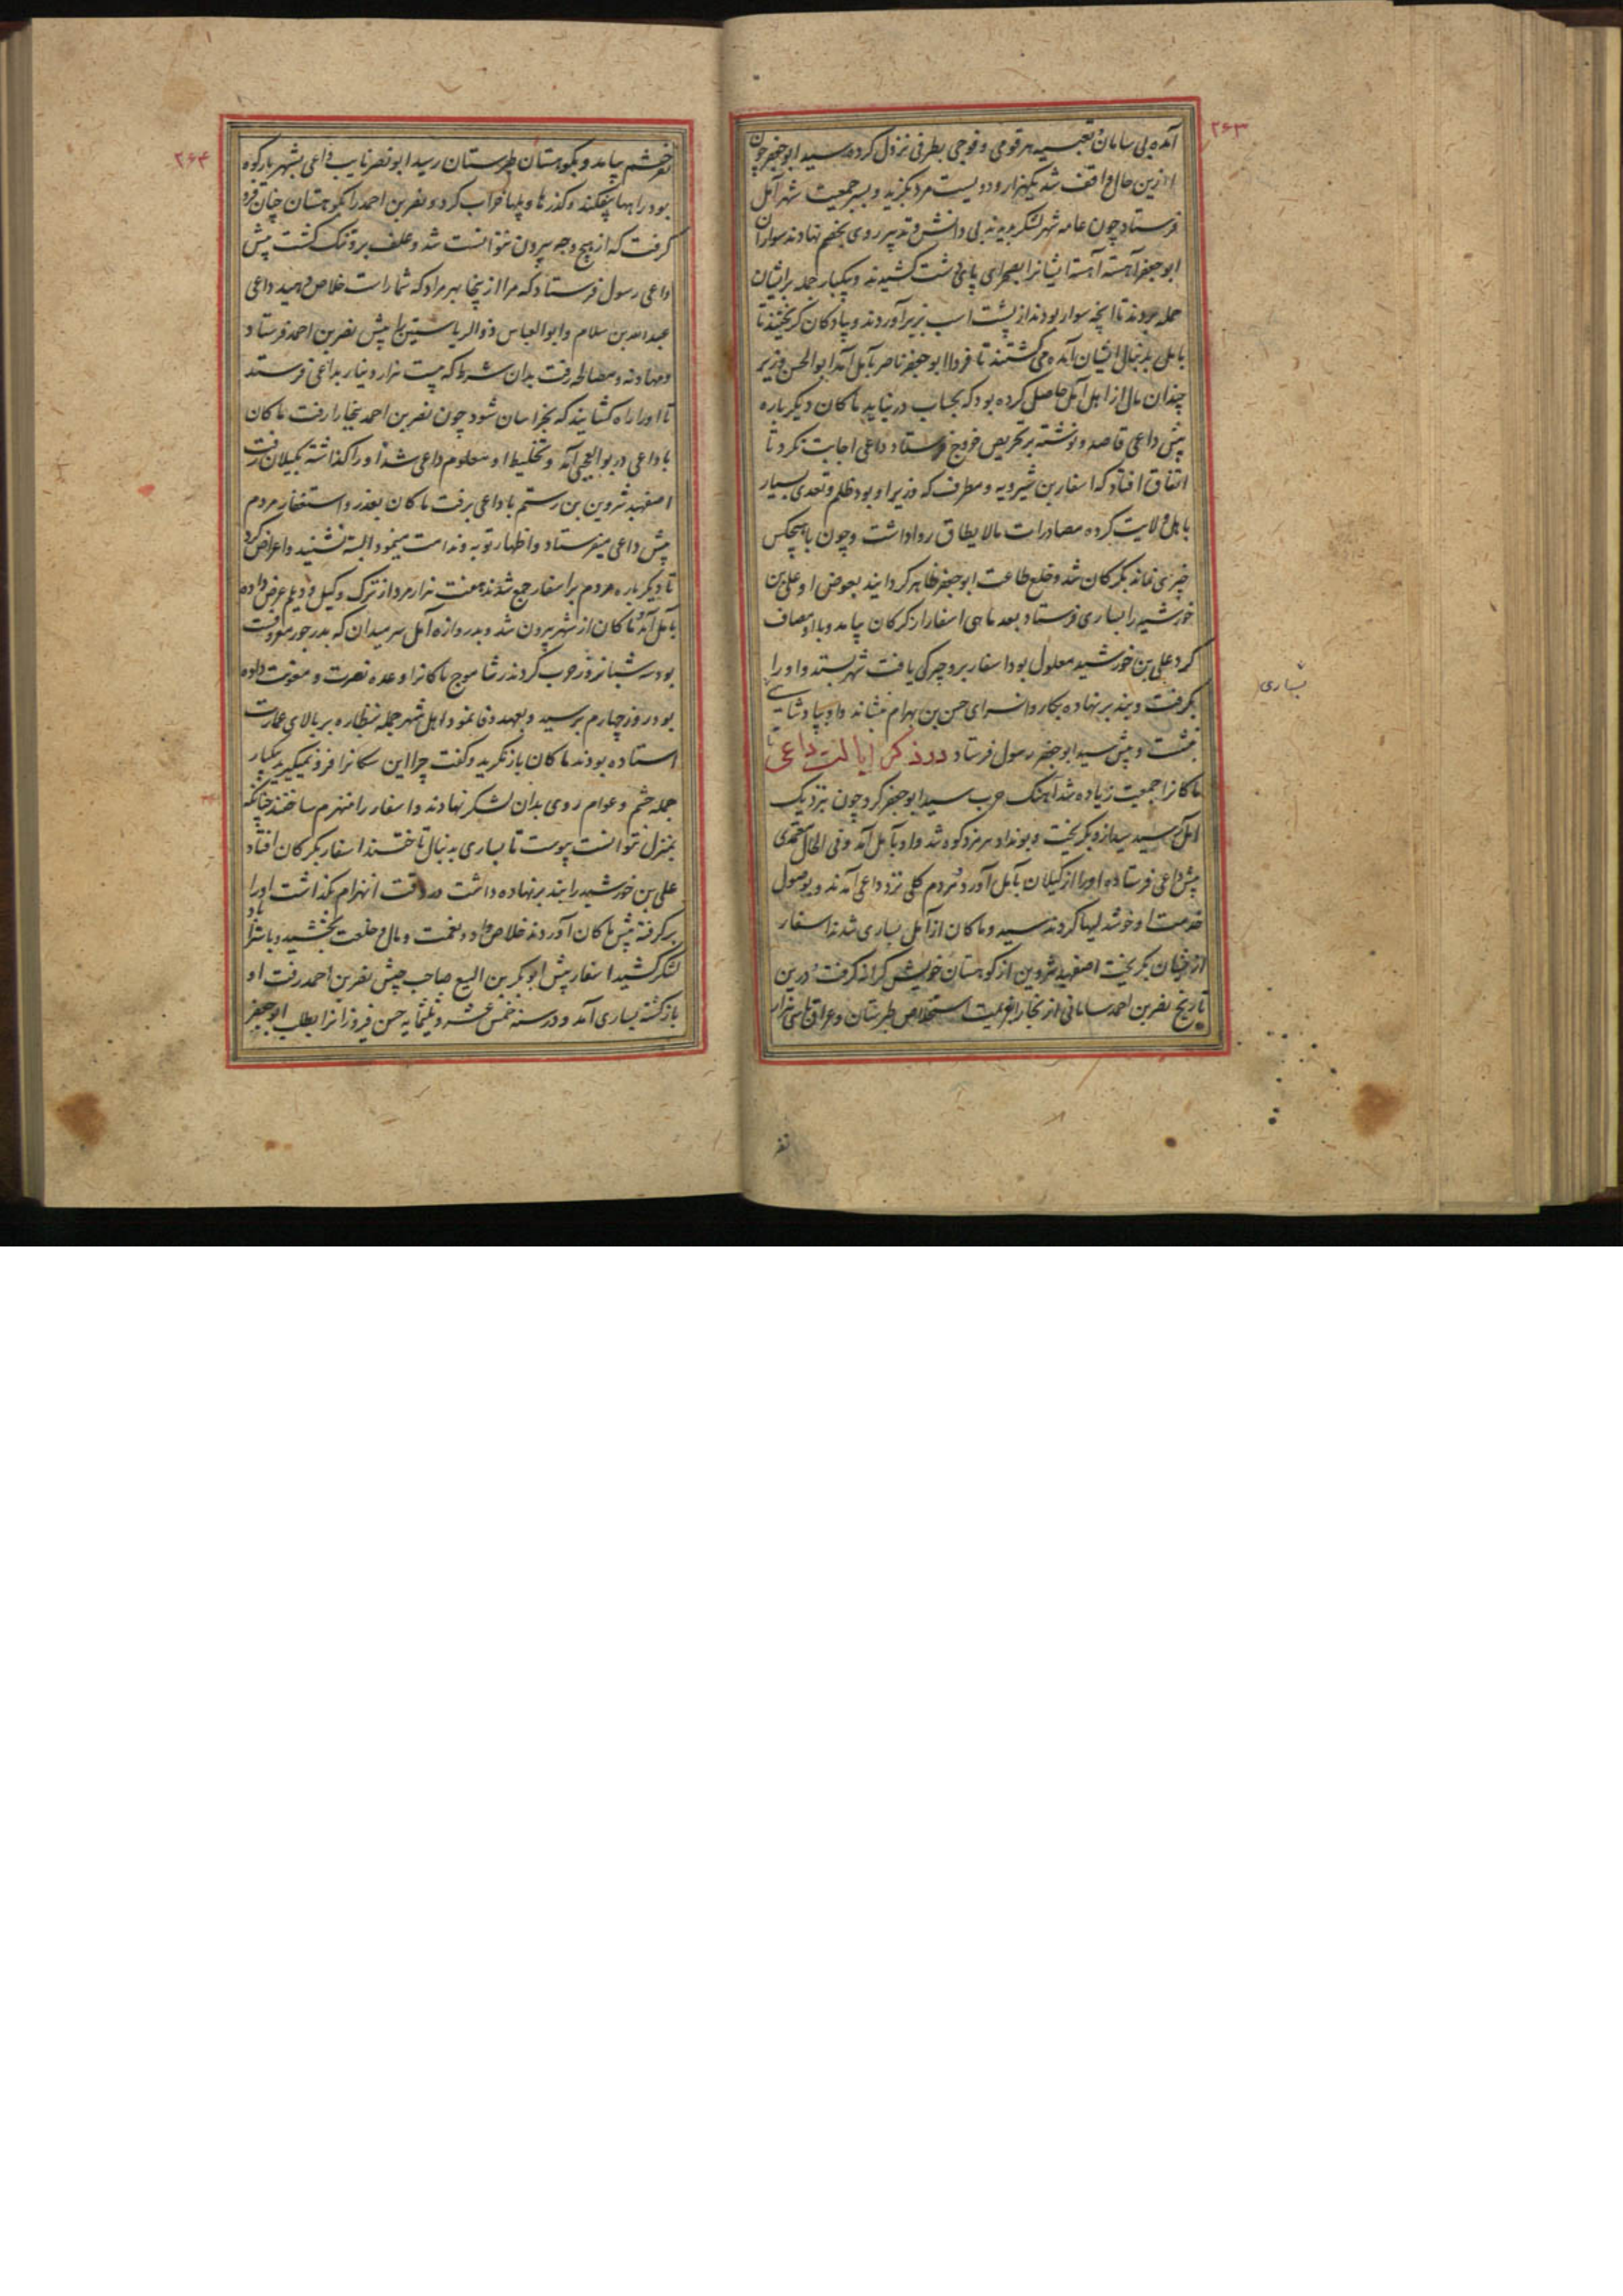 ۲۶۳
آمده بی سامان و تعبیه هر قومی و فوجی بطرفی نزول کرده سید ابوجعفر چون
ازین حال واقف شد یکهزار و دویست مرد بگزید و بسر جمعیت شهر آمل
فرستاد چون عامه شهر لشکر بدیدند بی دانش و تدبیر روی بخصم نهادند سواران
ابوجعفر آهسته آهسته ایشانرا بصحرای پای دشت کشیدند و بیکبار جمله برایشان
حمله بردند تا آنچه سوار بودند از پشت اسب بزیر آوردند و پیادکان کریختند تا
بآمل بدنبال ایشان آمده می کشتند تا فردا ابوجعفر ناصر بآمل آمد ابوالحسن وزیر
چندان مال از اهل آمل حاصل کرده بود که بحساب درنیاید ماکان دیکرباره
پیش داعی قاصد و نوشته بر تحریص خروج فرستاد داعی اجابت نکرد تا
اتفاق افتاد که اسفار بن شیرویه و مطرف که وزیر او بود ظلم و تعدی بسیار
با اهل ولایت کرده مصادرات مالایطاق روا داشت و چون با هیچکس
چیزی نماند بکرکان شد و خلع طاعت ابوجعفر ظاهر کردانید بعوض او علی بن
خورشید را بساری فرستاد بعد ماهی اسفار از کرکان بیامد و با او مصاف
کرد علی بن خورشید معلول بود اسفار برو چیرکی یافت شهر بستد و او را
بگرفت و بند برنهاده بکاروانسرای حسن بن بهرام بنشاند و او بپادشایی
بنشست و پیش سید ابوجعفر رسول فرستاد در ذکر ایالت داعی تا
ماکانرا جمعیت زیاده شد آهنک حرب سید ابوجعفر کرد چون بنزدیک
آمل رسید سید ازو بگریخت و بونداد هرمزد کوه شد و او بآمل آمد و فی الحال معتمدی
پیش داعی فرستاده او را از کیلان بآمل آورد و مردم کلی نزد داعی آمدند و بوصول
خدمت او خوشدلیها کردند سید و ماکان از آمل بساری شدند اسفار
از ایشان بگریخت اصفهبد شروین از کوهستان خویش کرانه کرفت و درین
تاریخ نصر بن احمد سامانی از بخارا بعزیمت استخلاص طبرستان و عراق با سی هزار
بساری
نفر
۲۶۴
نفر حشم بیامد و بکوهستان طبرستان رسید ابونصر نایب داعی بشهریار کوه
بود راهها بیفکند و کذرها و پلها خراب کرد و نصر بن احمد را بکوهستان چنان فرو
کرفت که از هیچ وجه بیرون نتوانست شد و علف برو تنک کشت پیش
داعی رسول فرستاد که مرا از ینجا بهر مراد که شما راست خلاص دهید داعی
عبدالله بن سلام و ابوالعباس ذوالریاستین را پیش نصر بن احمد فرستاد
و مهادنه و مصالحه رفت بدان شرط که بیست هزار دینار بداعی فرستد
تا او را راه کشایند که بخراسان شود چون نصر بن احمد ببخارا رفت ماکان
با داعی در بوالعجبی آمد و تخلیط او معلوم داعی شد او را کذاشته بکیلان رفت
اصفهبد شروین بن رستم با داعی برفت ماکان بعذر و استغفار مردم
پیش داعی میفرستاد و اظهار توبه و ندامت مینمود البته نشنید و اعراض کرد
تا دیکر باره مردم بر اسفار جمع شدند هفت هزار مرد از ترک و کیل و دیلم عرض داده
بآمل آمد ماکان از شهر بیرون شد و بدروازه آمل سر میدان که بدر جور معروفست
بود سه شبانروز حرب کردند رشاموج ماکانرا وعده نصرت و معونت داده
بود روز چهارم برسید و بعهد وفا نمود اهل شهر جمله بنظاره بر بالای عمارت
استاده بودند ماکان باز نکرید و کفت چرا این سکانرا فرو نمیگیرید بیکبار
جمله حشم و عوام روی بدان لشکر نهادند و اسفار را منهزم ساختند چنانکه
بمنزل نتوانست پیوست تا بساری بدنبال تاختند اسفار بکرکان افتاد
علی بن خورشید را بند برنهاده داشت در وقت انهزام بگذاشت او را
برکرفته پیش ماکان آوردند خلاص داد و نعمت و مال و خلعت بخشید و باستراباد
لشکر کشید اسفار پیش ابوبکر بن الیسع صاحب جیش نصر بن احمد رفت او
بازکشته بساری آمد و در سنه خمس عشر و ثلثمایه حسن فیروزانرا بطلب ابوجعفر